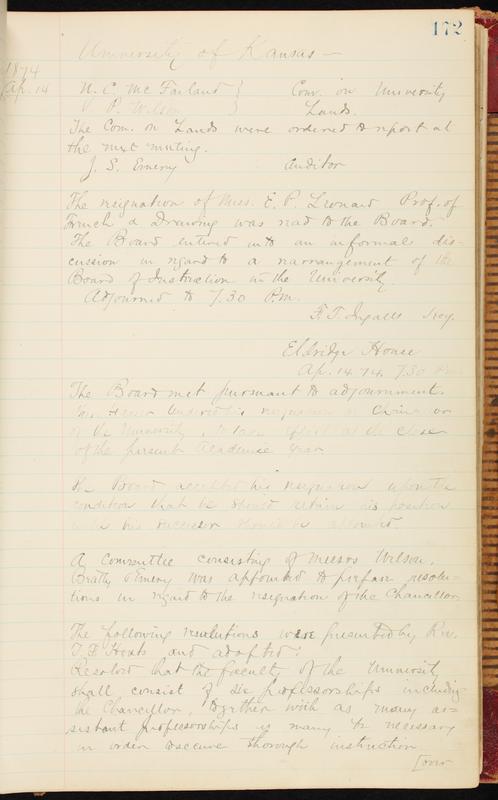 172
University of Kansas —
1874
Ap. 14
N. C. McFarland } Com. on University
V. P. Wilson } Lands.
The Com. on Lands were ordered to report at
the next meeting.
J. S. Emery Auditor
The resignation of Miss. E. P. Leonard Prof. of
French & Drawing was read to the Board.
The Board entered into an informal dis-
cussion in regard to a rearrangement of the
Board of Instruction in the University.
Adjourned to 7.30 P.m.
F. T. Ingalls Secy.
Eldridge House
Ap. 14. 74. 7.30 Pm
The Board met pursuant to adjournment.
resignation
of the University, to take effect at the close
of the present Academic year
The Board accepted his resignation upon the
condition that he should retain his position
until his successor should be appointed.
A Committee consisting of Messrs Wilson,
Bratty & Emery was appointed to prepare resolu-
tions in regard to the resignation of the Chancellor
The following resolutions were presented by Rev.
and adopted:
Resolved that the faculty of the University
shall consist of six professorships including
the Chancellor, together with as many as-
sistant professorships as may be necessary
in order to secure thorough instruction
[over